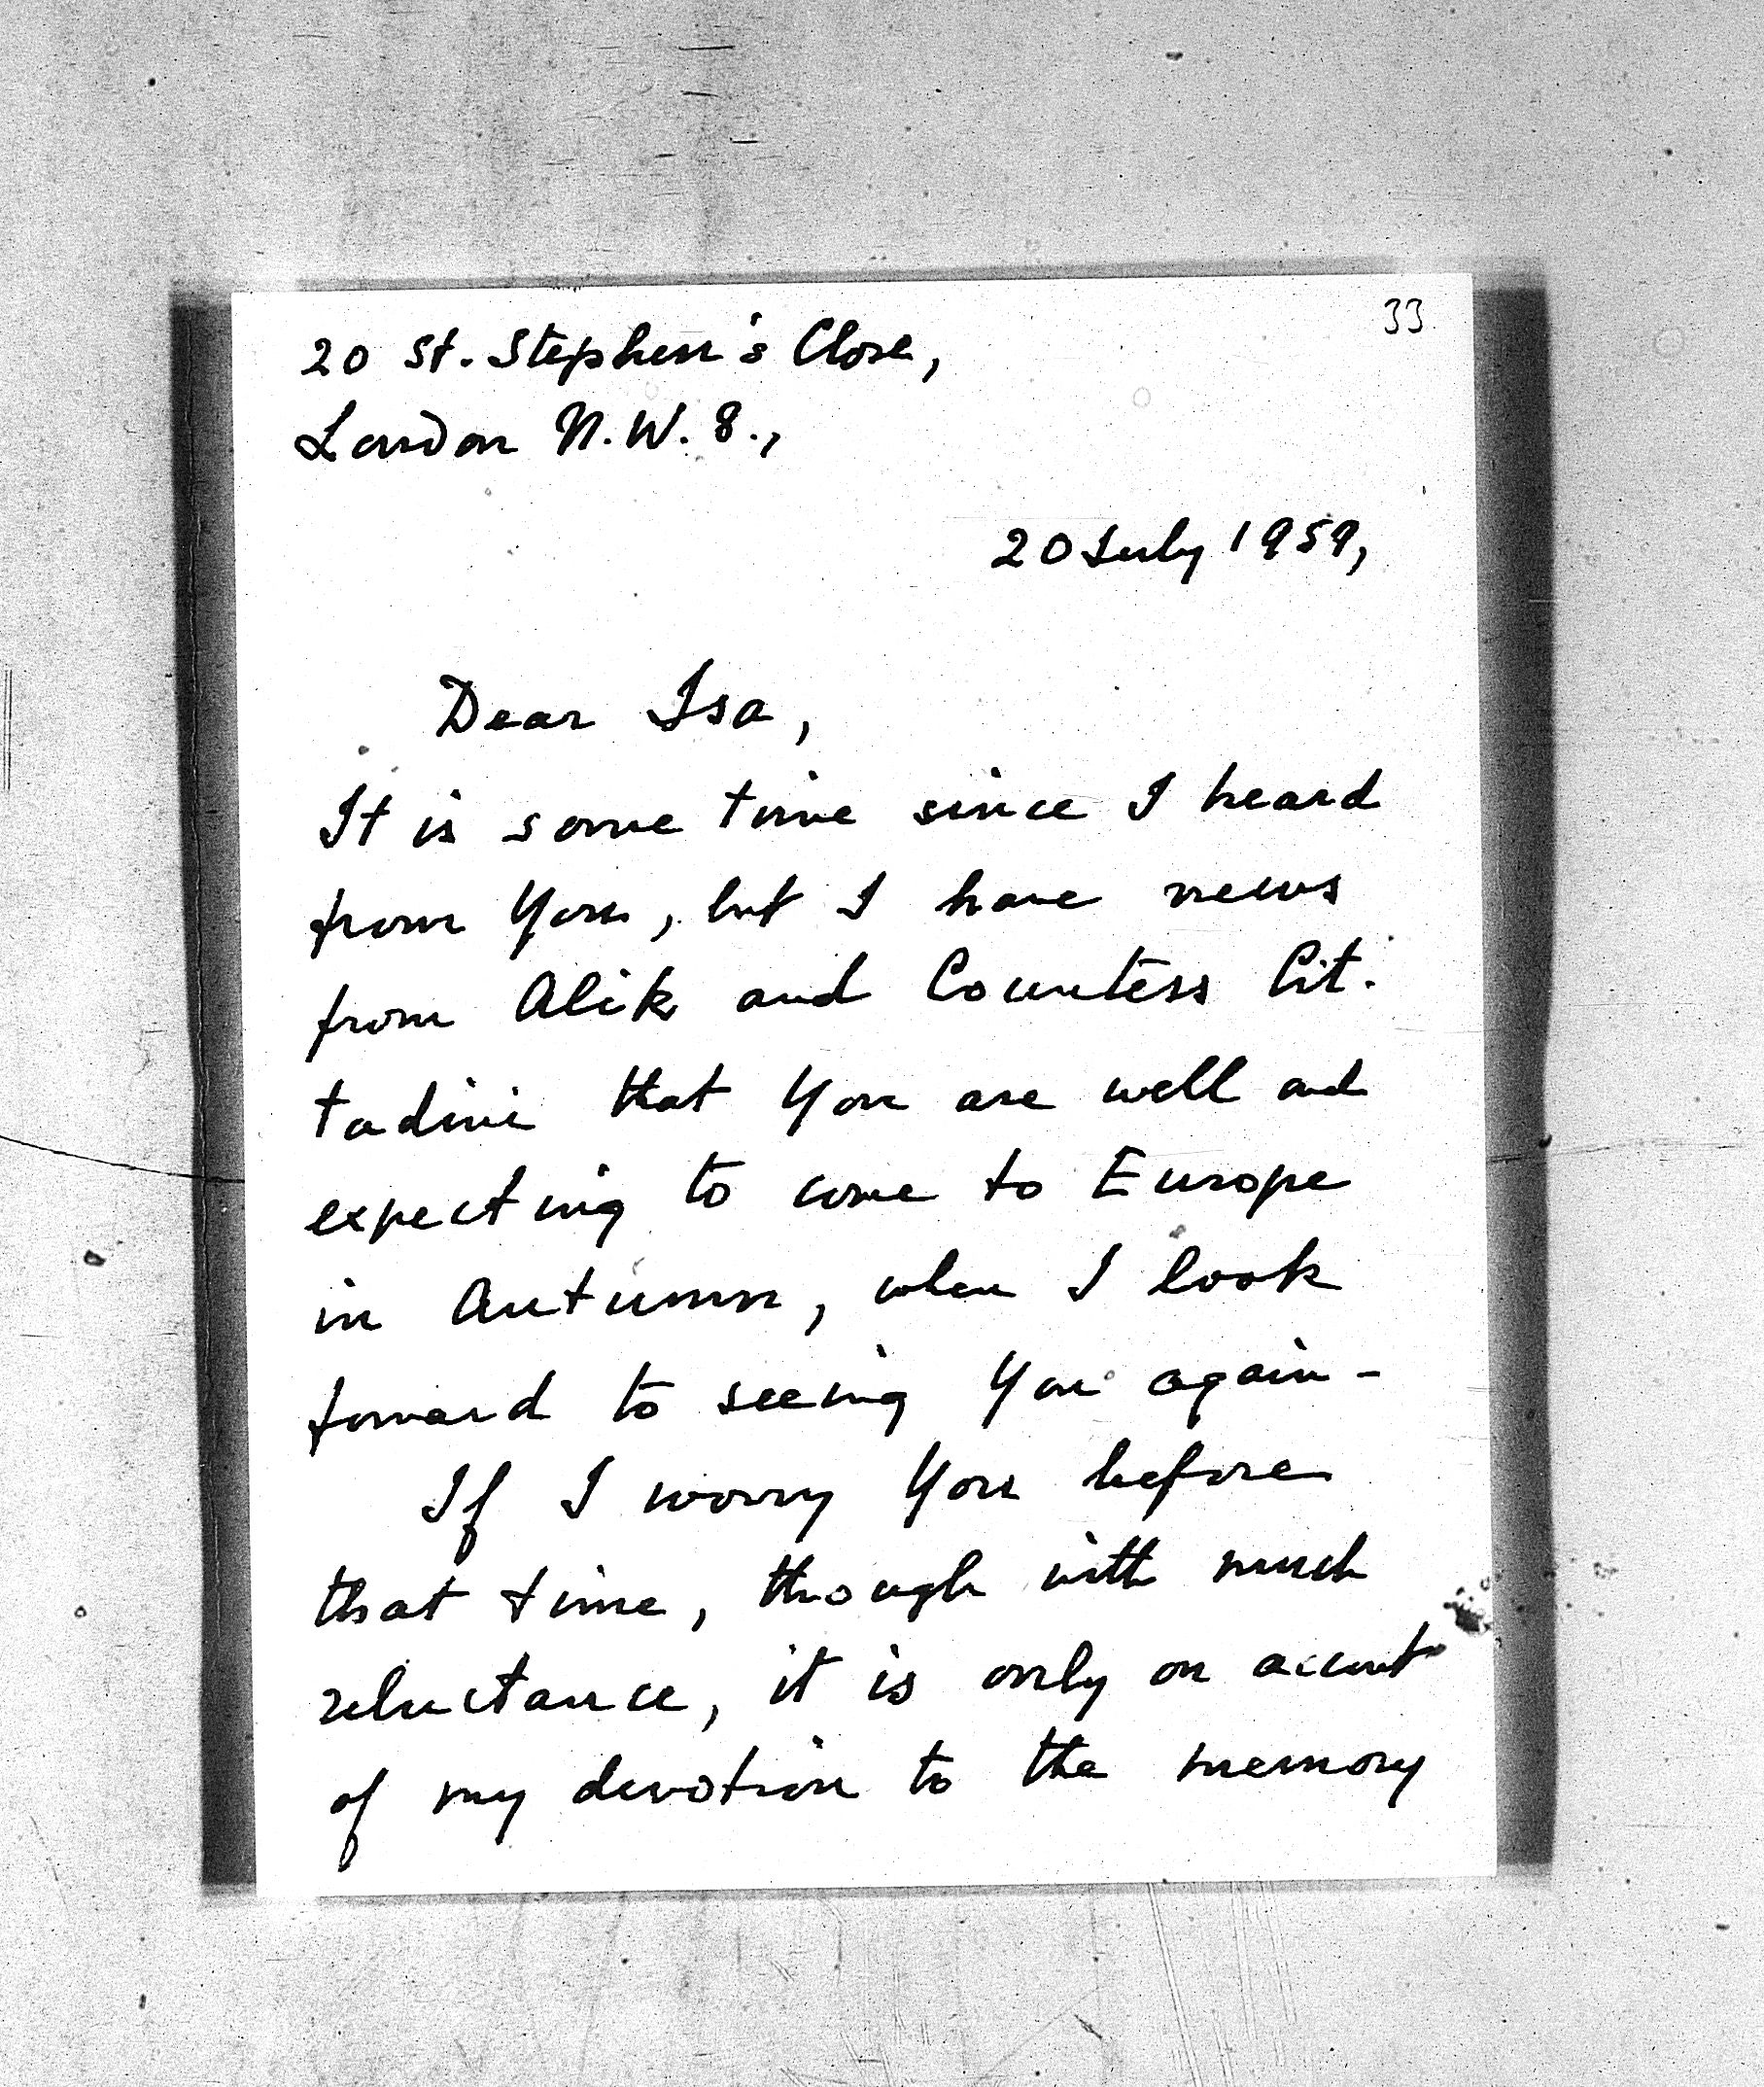 33
20 St. Stephen's Close,
London N.W. 8.,
20 July 1959,
Dear Isa,
It is some time since I heard
from You, but I have news
from Alik and Countess Cit.
tadini that You are well and
expecting to come to Europe
in Autumn, when I look
forward to seeing You again -
If I worry You before
that time, though with much
reluctance, it is only on account
of my devotion to the memory